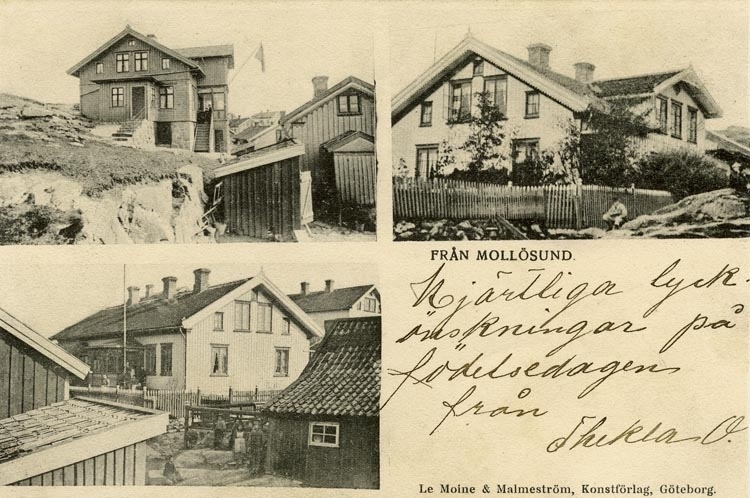 FRÅN MOLLÖSUND.
Hjärtliga lyck-
önskningar på
födelsedagen
från
Thekla O.
Le Moine & Malmeström, Konstförlag, Göteborg.